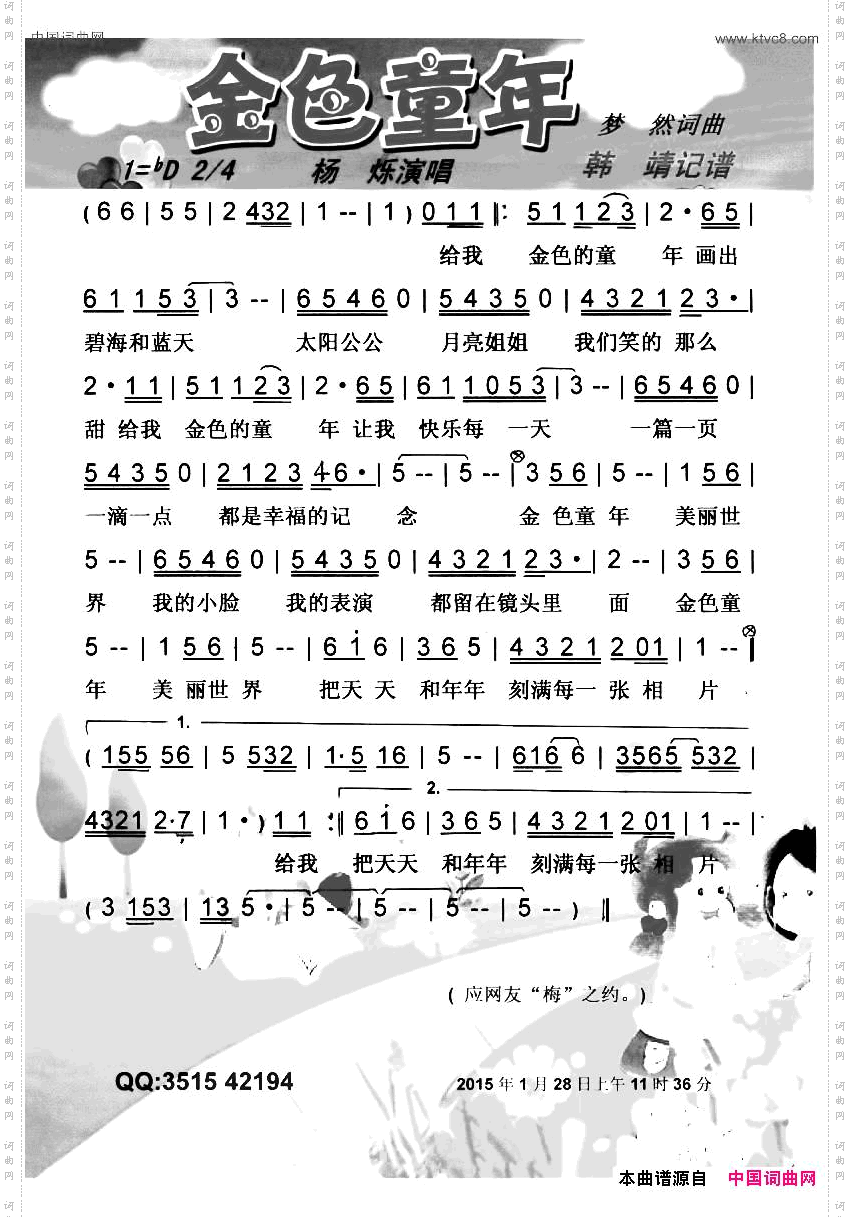 中国词曲网
www.ktvc8.com
金色童年
梦 然词曲
1=bD 2/4 杨 烁演唱 韩 靖记谱
( 6 6 | 5 5 | 2 432 | 1 -- | 1 ) 0 1 1 ‖: 5 1 1 2 3 | 2 • 6 5 |
给我 金色的童 年 画出
6 1 1 5 3 | 3 -- | 6 5 4 6 0 | 5 4 3 5 0 | 4 3 2 1 2 3 • |
碧海和蓝天 太阳公公 月亮姐姐 我们笑的 那么
2 • 1 1 | 5 1 1 2 3 | 2 • 6 5 | 6 1 1 0 5 3 | 3 -- | 6 5 4 6 0 |
甜 给我 金色的童 年 让我 快乐每 一天 一篇一页
5 4 3 5 0 | 2 1 2 3 4 6 • | 5 -- | 5 -- | 3 5 6 | 5 -- | 1 5 6 |
一滴一点 都是幸福的记 念 金 色童 年 美丽世
5 -- | 6 5 4 6 0 | 5 4 3 5 0 | 4 3 2 1 2 3 • | 2 -- | 3 5 6 |
界 我的小脸 我的表演 都留在镜头里 面 金色童
5 -- | 1 5 6 | 5 -- | 6 1 6 | 3 6 5 | 4 3 2 1 2 01 | 1 -- |
年 美 丽世 界 把天 天 和年年 刻满每一 张 相 片
1.
( 155 56 | 5 532 | 1·5 16 | 5 -- | 616 6 | 3565 532 |
2.
4321 2·7 | 1 • ) 1 1 :‖ 6 1 6 | 3 6 5 | 4 3 2 1 2 01 | 1 -- |
给我 把天天 和年年 刻满每一张 相 片
( 3 153 | 13 5 • | 5 -- | 5 -- | 5 -- | 5 -- ) ‖
( 应网友“梅”之约。)
QQ:3515 42194
2015 年 1 月 28 日上午 11 时 36 分
本曲谱源自 中国词曲网